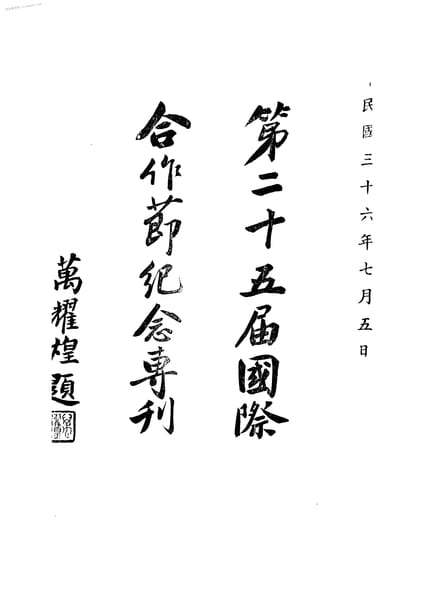 民國三十六年七月五日
第二十五届國際
合作節紀念專刊
萬耀煌題